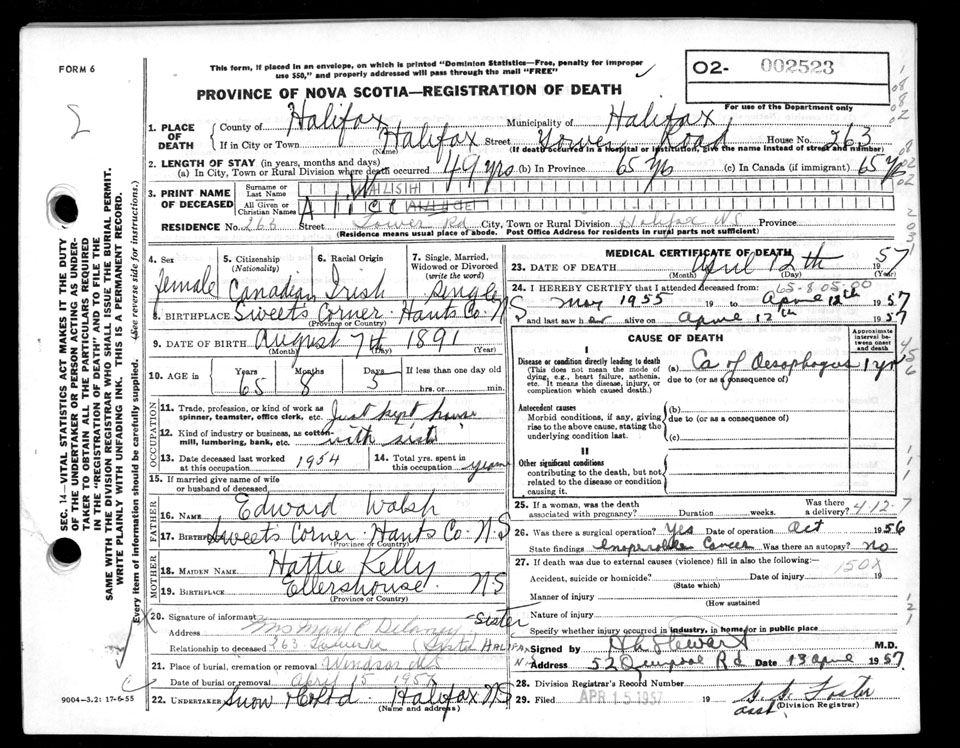 FORM 6
This form, if placed in an envelope, on which is printed "Dominion Statistics—Free, penalty for improper
use $50," and properly addressed will pass through the mail "FREE"
O2- 002523
For use of the Department only
PROVINCE OF NOVA SCOTIA—REGISTRATION OF DEATH
1. PLACE OF DEATH { County of Halifax Municipality of Halifax
If in City or Town Halifax Street Tower Road House No. 263
(Name) (If death occurred in a hospital or institution, give the name instead of street and number)
2. LENGTH OF STAY (in years, months and days)
(a) In City, Town or Rural Division where death occurred 49 yrs (b) In Province 65 yrs (c) In Canada (if immigrant) 65 yrs
3. PRINT NAME OF DECEASED { Surname or Last Name WALSH
All Given or Christian Names Alice
RESIDENCE No. 263 Street Tower Rd City, Town or Rural Division Halifax N.S Province
(Residence means usual place of abode. Post Office Address for residents in rural parts not sufficient)
4. Sex female
5. Citizenship (Nationality) Canadian
6. Racial Origin Irish
7. Single, Married, Widowed or Divorced (write the word) Single
8. BIRTHPLACE Sweets Corner Hants Co. N S
(Province or Country)
9. DATE OF BIRTH August 7th 1891
(Month) (Day) (Year)
10. AGE in { Years 65 Months 8 Days 5 If less than one day old
hrs. or min.
OCCUPATION
11. Trade, profession, or kind of work as spinner, teamster, office clerk, etc. Just kept house
12. Kind of industry or business, as cotton-mill, lumbering, bank, etc. with sister
13. Date deceased last worked at this occupation 1954
14. Total yrs. spent in this occupation years
15. If married give name of wife or husband of deceased
FATHER
16. NAME Edward Walsh
17. BIRTHPLACE Sweets Corner Hants Co. N S
(Province or Country)
MOTHER
18. MAIDEN NAME. Hattie Kelly
19. BIRTHPLACE Ellershouse N S
(Province or Country)
20. Signature of informant Mrs Mary C Delaney sister
Address
Relationship to deceased 263 Tower Rd (Sister HALIFAX N.S
21. Place of burial, cremation or removal Windsor N.S
Date of burial or removal April 15 1957
22. UNDERTAKER Snow & Co Ltd Halifax N S
(Name and address)
MEDICAL CERTIFICATE OF DEATH
23. DATE OF DEATH April 12th 1957
(Month) (Day) (Year)
24. I HEREBY CERTIFY that I attended deceased from: 65-8 05-00
May 1955 19 to April 12th 1957
and last saw her alive on April 12th 1957
CAUSE OF DEATH
Approximate interval between onset and death
I
Disease or condition directly leading to death
(This does not mean the mode of dying, e.g., heart failure, asthenia, etc. It means the disease, injury, or complication which caused death.)
(a) Ca of Oesophagus 1 yr
due to (or as a consequence of)
Antecedent causes
Morbid conditions, if any, giving rise to the above cause, stating the underlying condition last.
(b)
due to (or as a consequence of)
(c)
II
Other significant conditions
contributing to the death, but not related to the disease or condition causing it.
25. If a woman, was the death associated with pregnancy? Duration weeks. Was there a delivery? 412-7
26. Was there a surgical operation? Yes Date of operation Oct 1956
State findings Inoperable Cancer Was there an autopsy? No
27. If death was due to external causes (violence) fill in also the following:— 150X
Accident, suicide or homicide? Date of injury 19
(State which)
Manner of injury
(How sustained
Nature of injury
Specify whether injury occurred in industry, in home or in public place
Signed by H A Stewart M.D.
Address 52 Rd Date 13 April 1957
28. Division Registrar's Record Number
29. Filed APR 15 1957 19 G. S. Foster
asst. (Division Registrar)
9004—3.2: 17-6-55
SEC. 14—VITAL STATISTICS ACT MAKES IT THE DUTY
OF THE UNDERTAKER OR PERSON ACTING AS UNDER-
TAKER TO OBTAIN ALL THE PARTICULARS REQUIRED
IN THE "REGISTRATION OF DEATH" AND TO FILE THE
SAME WITH THE DIVISION REGISTRAR WHO SHALL ISSUE THE BURIAL PERMIT.
WRITE PLAINLY WITH UNFADING INK. THIS IS A PERMANENT RECORD.
Every item of information should be carefully supplied. (See reverse side for instructions.)